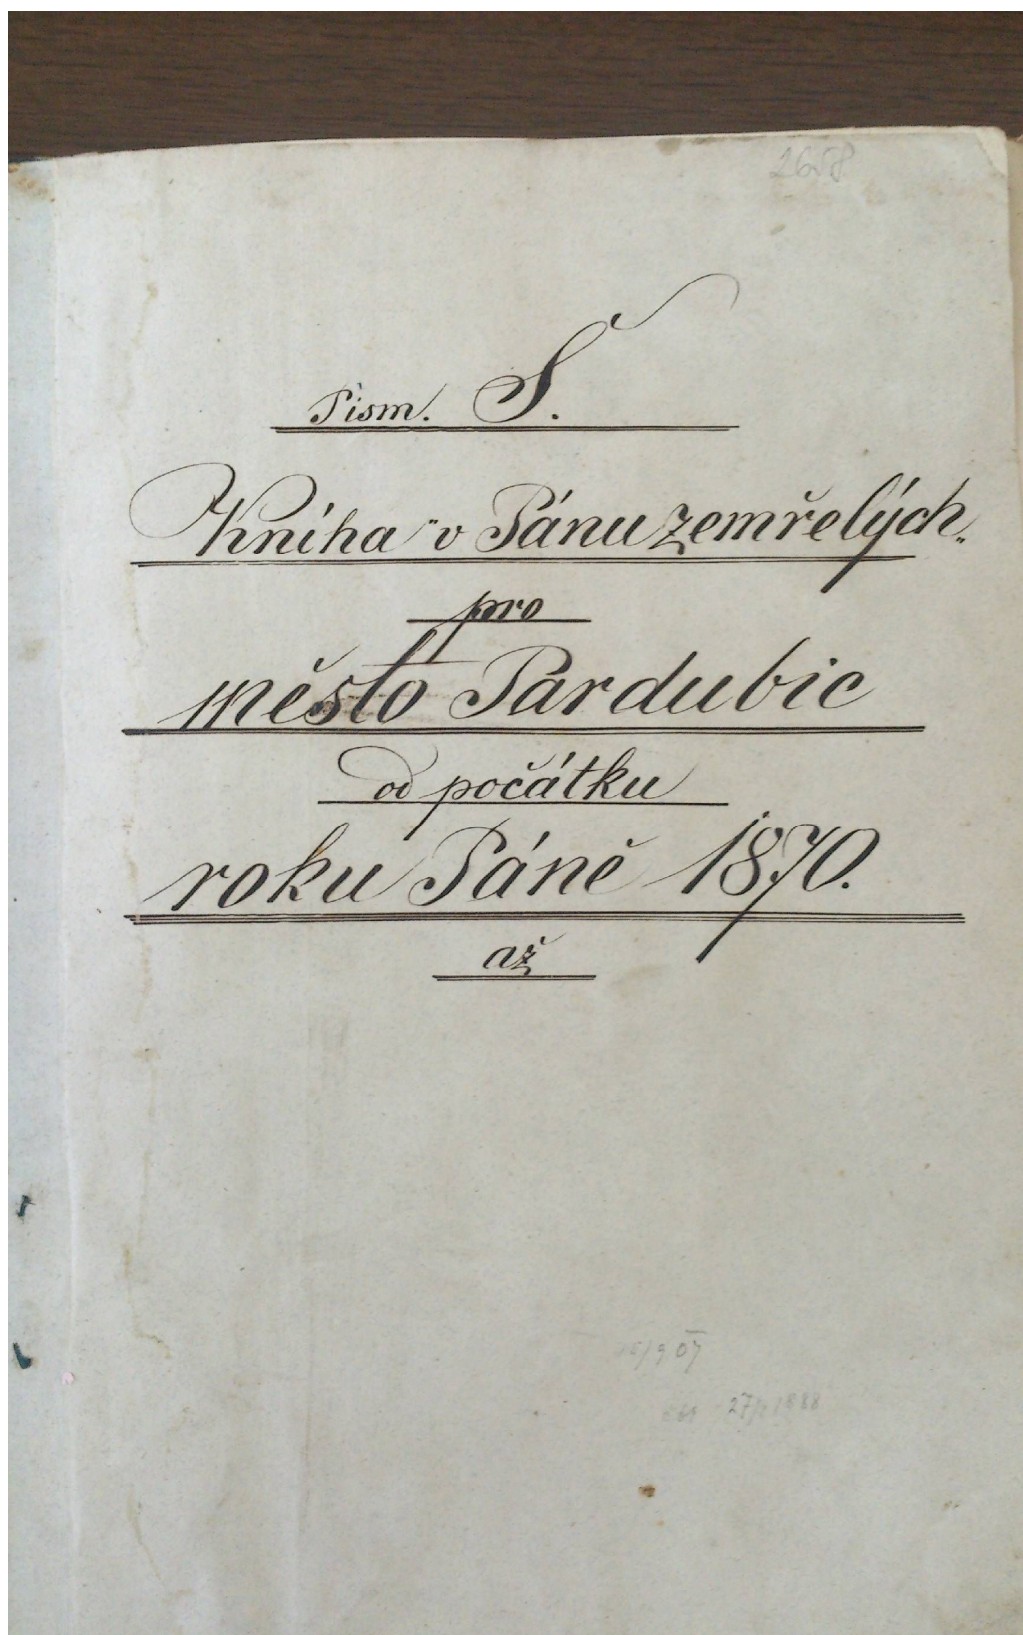 2658
Písm. Š.
Kniha "v Pánu zemřelých"
pro
město Pardubic
od počátku
roku Páně 1870.
až